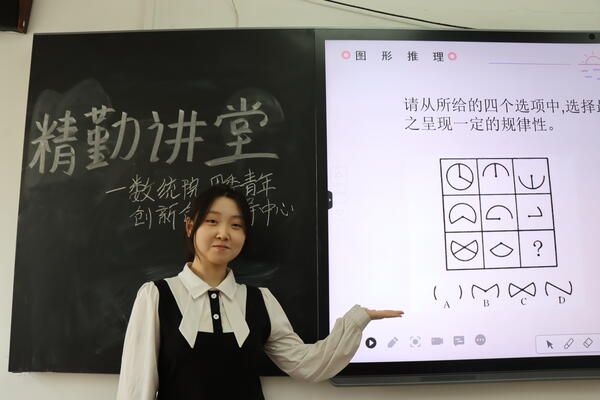 精勤讲堂
一数统院 青年
创新 中心
图形推理
请从所给的四个选项中,选择最
之呈现一定的规律性。
?
A B C D